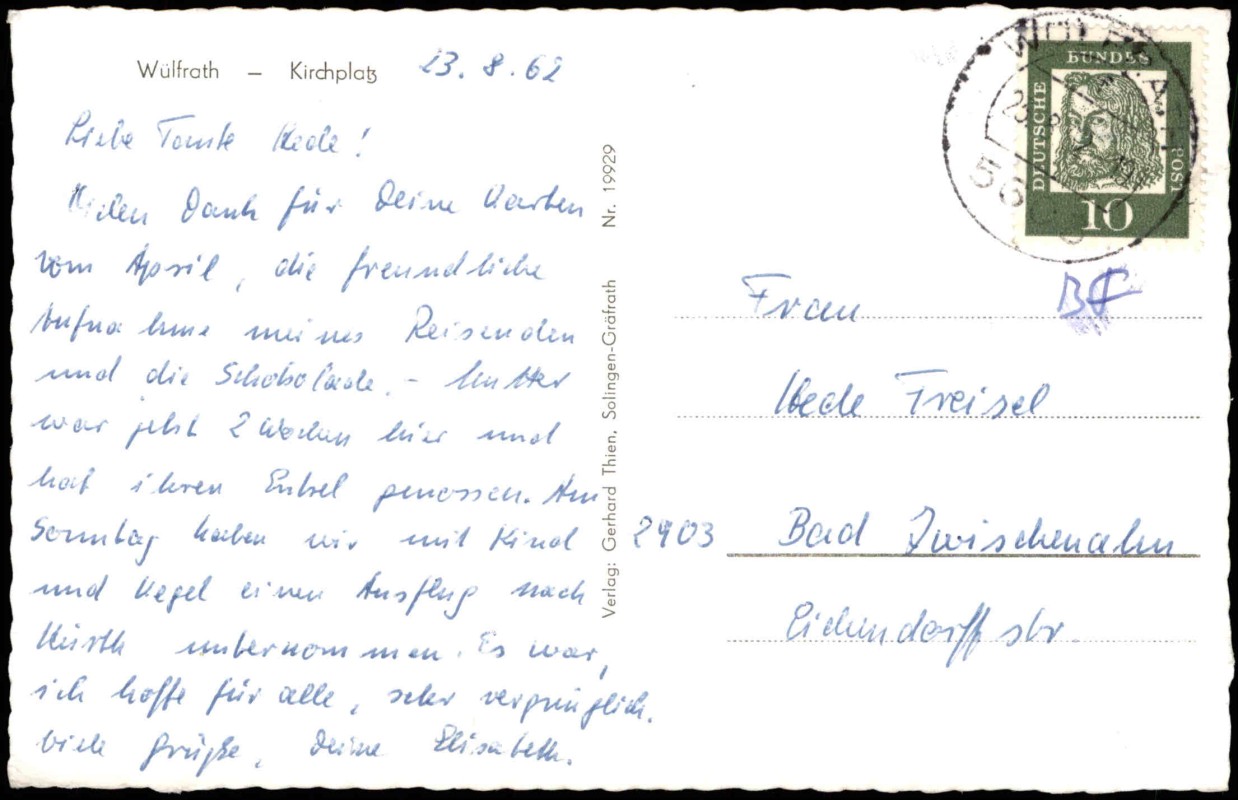 Wülfrath – Kirchplatz
23. 8. 62
Liebe Tante Hede!
Vielen Dank für Deine Karten
vom April, die freundliche
Aufnahme meines Reisenden
und die Schokolade. – Mutter
war jetzt 2 Wochen hier und
hat ihren Enkel genossen. Am
Sonntag haben wir mit Kind
und Kegel einen Ausflug nach
unternommen. Es war,
ich hoffe für alle, sehr vergnüglich.
Viele Grüße, Deine Elisabeth.
Verlag: Gerhard Thien, Solingen-Gräfrath Nr. 19929
WÜLFRATH
DEUTSCHE
BUNDES
POST
10
Frau
Hede Freisel
2903 Bad Zwischenahn
Eichendorffstr.